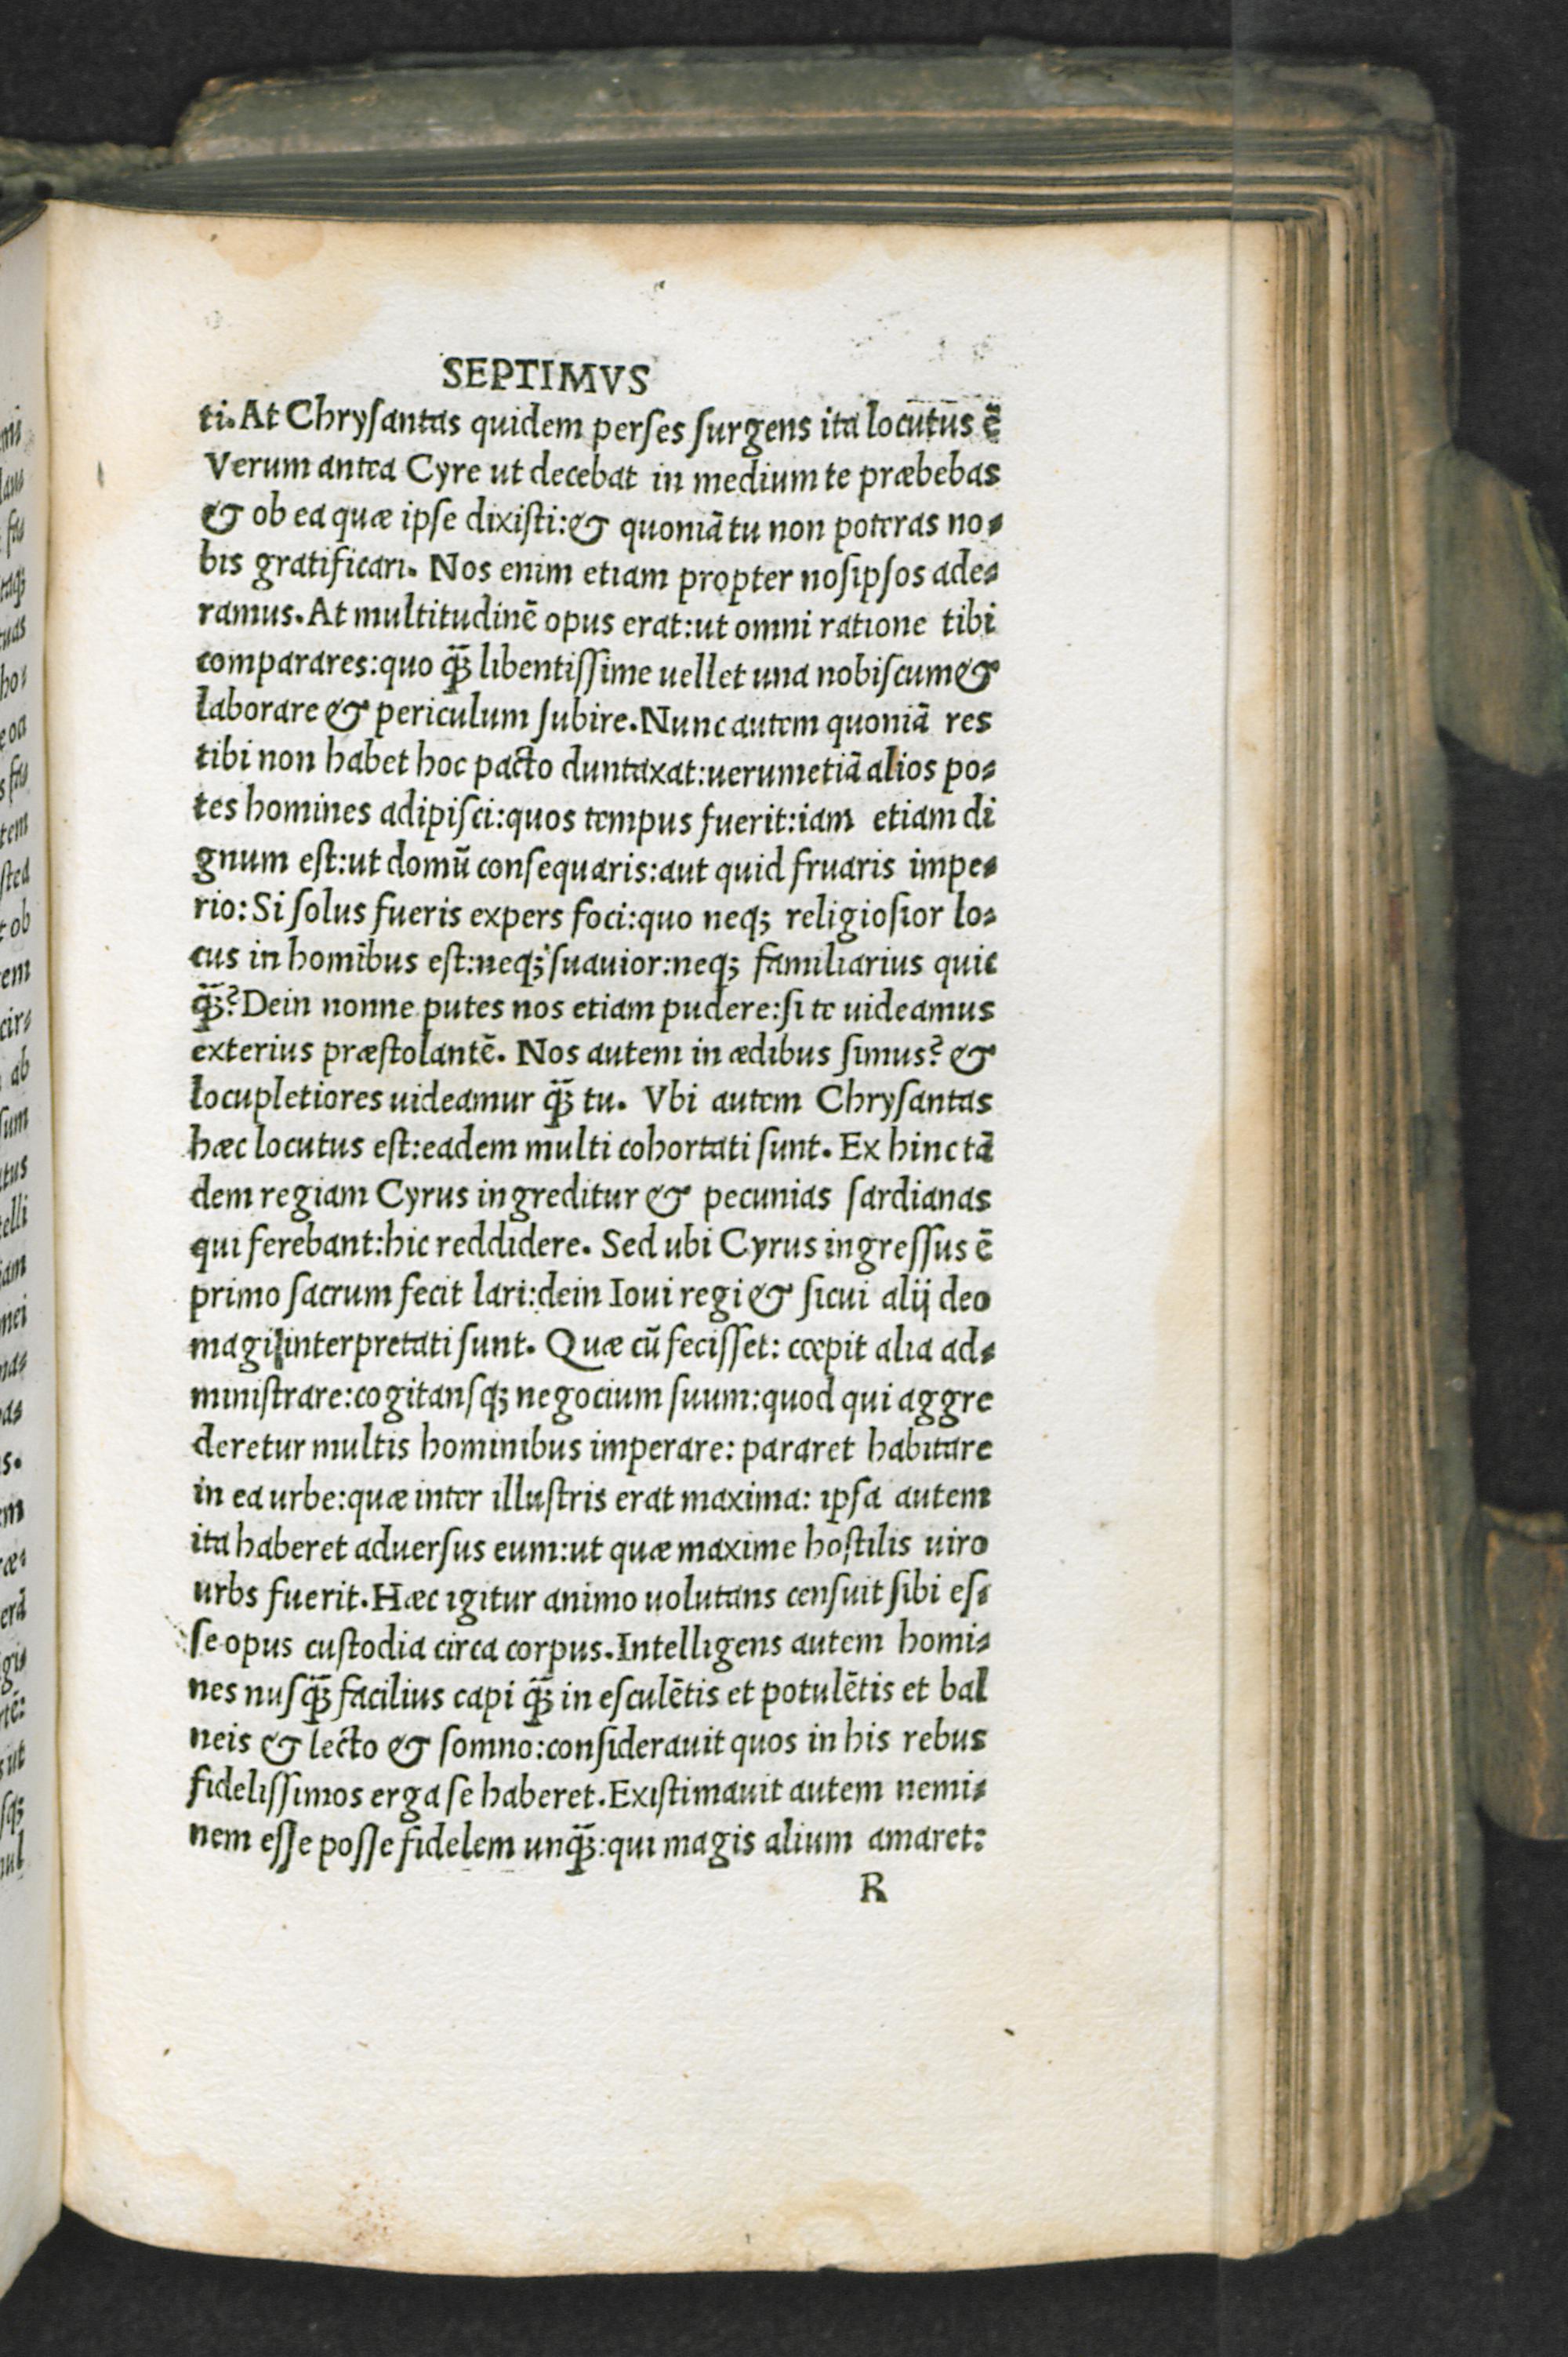 SEPTIMVS
ti. At Chryſantas quidem perſes ſurgens ita locutus ē
Verum antea Cyre ut decebat in medium te præbebas
& ob ea quæ ipſe dixiſti: & quoniā tu non poteras no-
bis gratificari. Nos enim etiam propter noſipſos ade-
ramus. At multitudinē opus erat: ut omni ratione tibi
comparares: quo q̄ꝫ libentiſſime uellet una nobiſcum &
laborare & periculum ſubire. Nunc autem quoniā res
tibi non habet hoc pacto duntaxat: uerumetiā alios po-
tes homines adipiſci: quos tempus fuerit: iam etiam di
gnum eſt: ut domū conſequaris: aut quid fruaris impe-
rio: Si ſolus fueris expers foci: quo neqꝫ religioſior lo-
cus in homībus eſt: neqꝫ ſuauior: neqꝫ familiarius quic
q̄ꝫ? Dein nonne putes nos etiam pudere: ſi te uideamus
exterius præſtolantē. Nos autem in ædibus ſimus? &
locupletiores uideamur q̄ꝫ tu. Vbi autem Chryſantas
hæc locutus eſt: eadem multi cohortati ſunt. Ex hinc tā
dem regiam Cyrus ingreditur & pecunias ſardianas
qui ferebant: hic reddidere. Sed ubi Cyrus ingreſſus ē
primo ſacrum fecit lari: dein Ioui regi & ſicui alij deo
magi interpretati ſunt. Quæ cū feciſſet: cœpit alia ad-
miniſtrare: cogitanſqꝫ negocium ſuum: quod qui aggre
deretur multis hominibus imperare: pararet habitare
in ea urbe: quæ inter illuſtris erat maxima: ipſa autem
ita haberet aduerſus eum: ut quæ maxime hoſtilis uiro
urbs fuerit. Hæc igitur animo uolutans cenſuit ſibi eſ-
ſe opus cuſtodia circa corpus. Intelligens autem homi-
nes nuſq̄ꝫ facilius capi q̄ꝫ in eſculētis et potulētis et bal
neis & lecto & ſomno: conſiderauit quos in his rebus
fideliſſimos erga ſe haberet. Exiſtimauit autem nemi-
nem eſſe poſſe fidelem unq̄ꝫ: qui magis alium amaret:
R